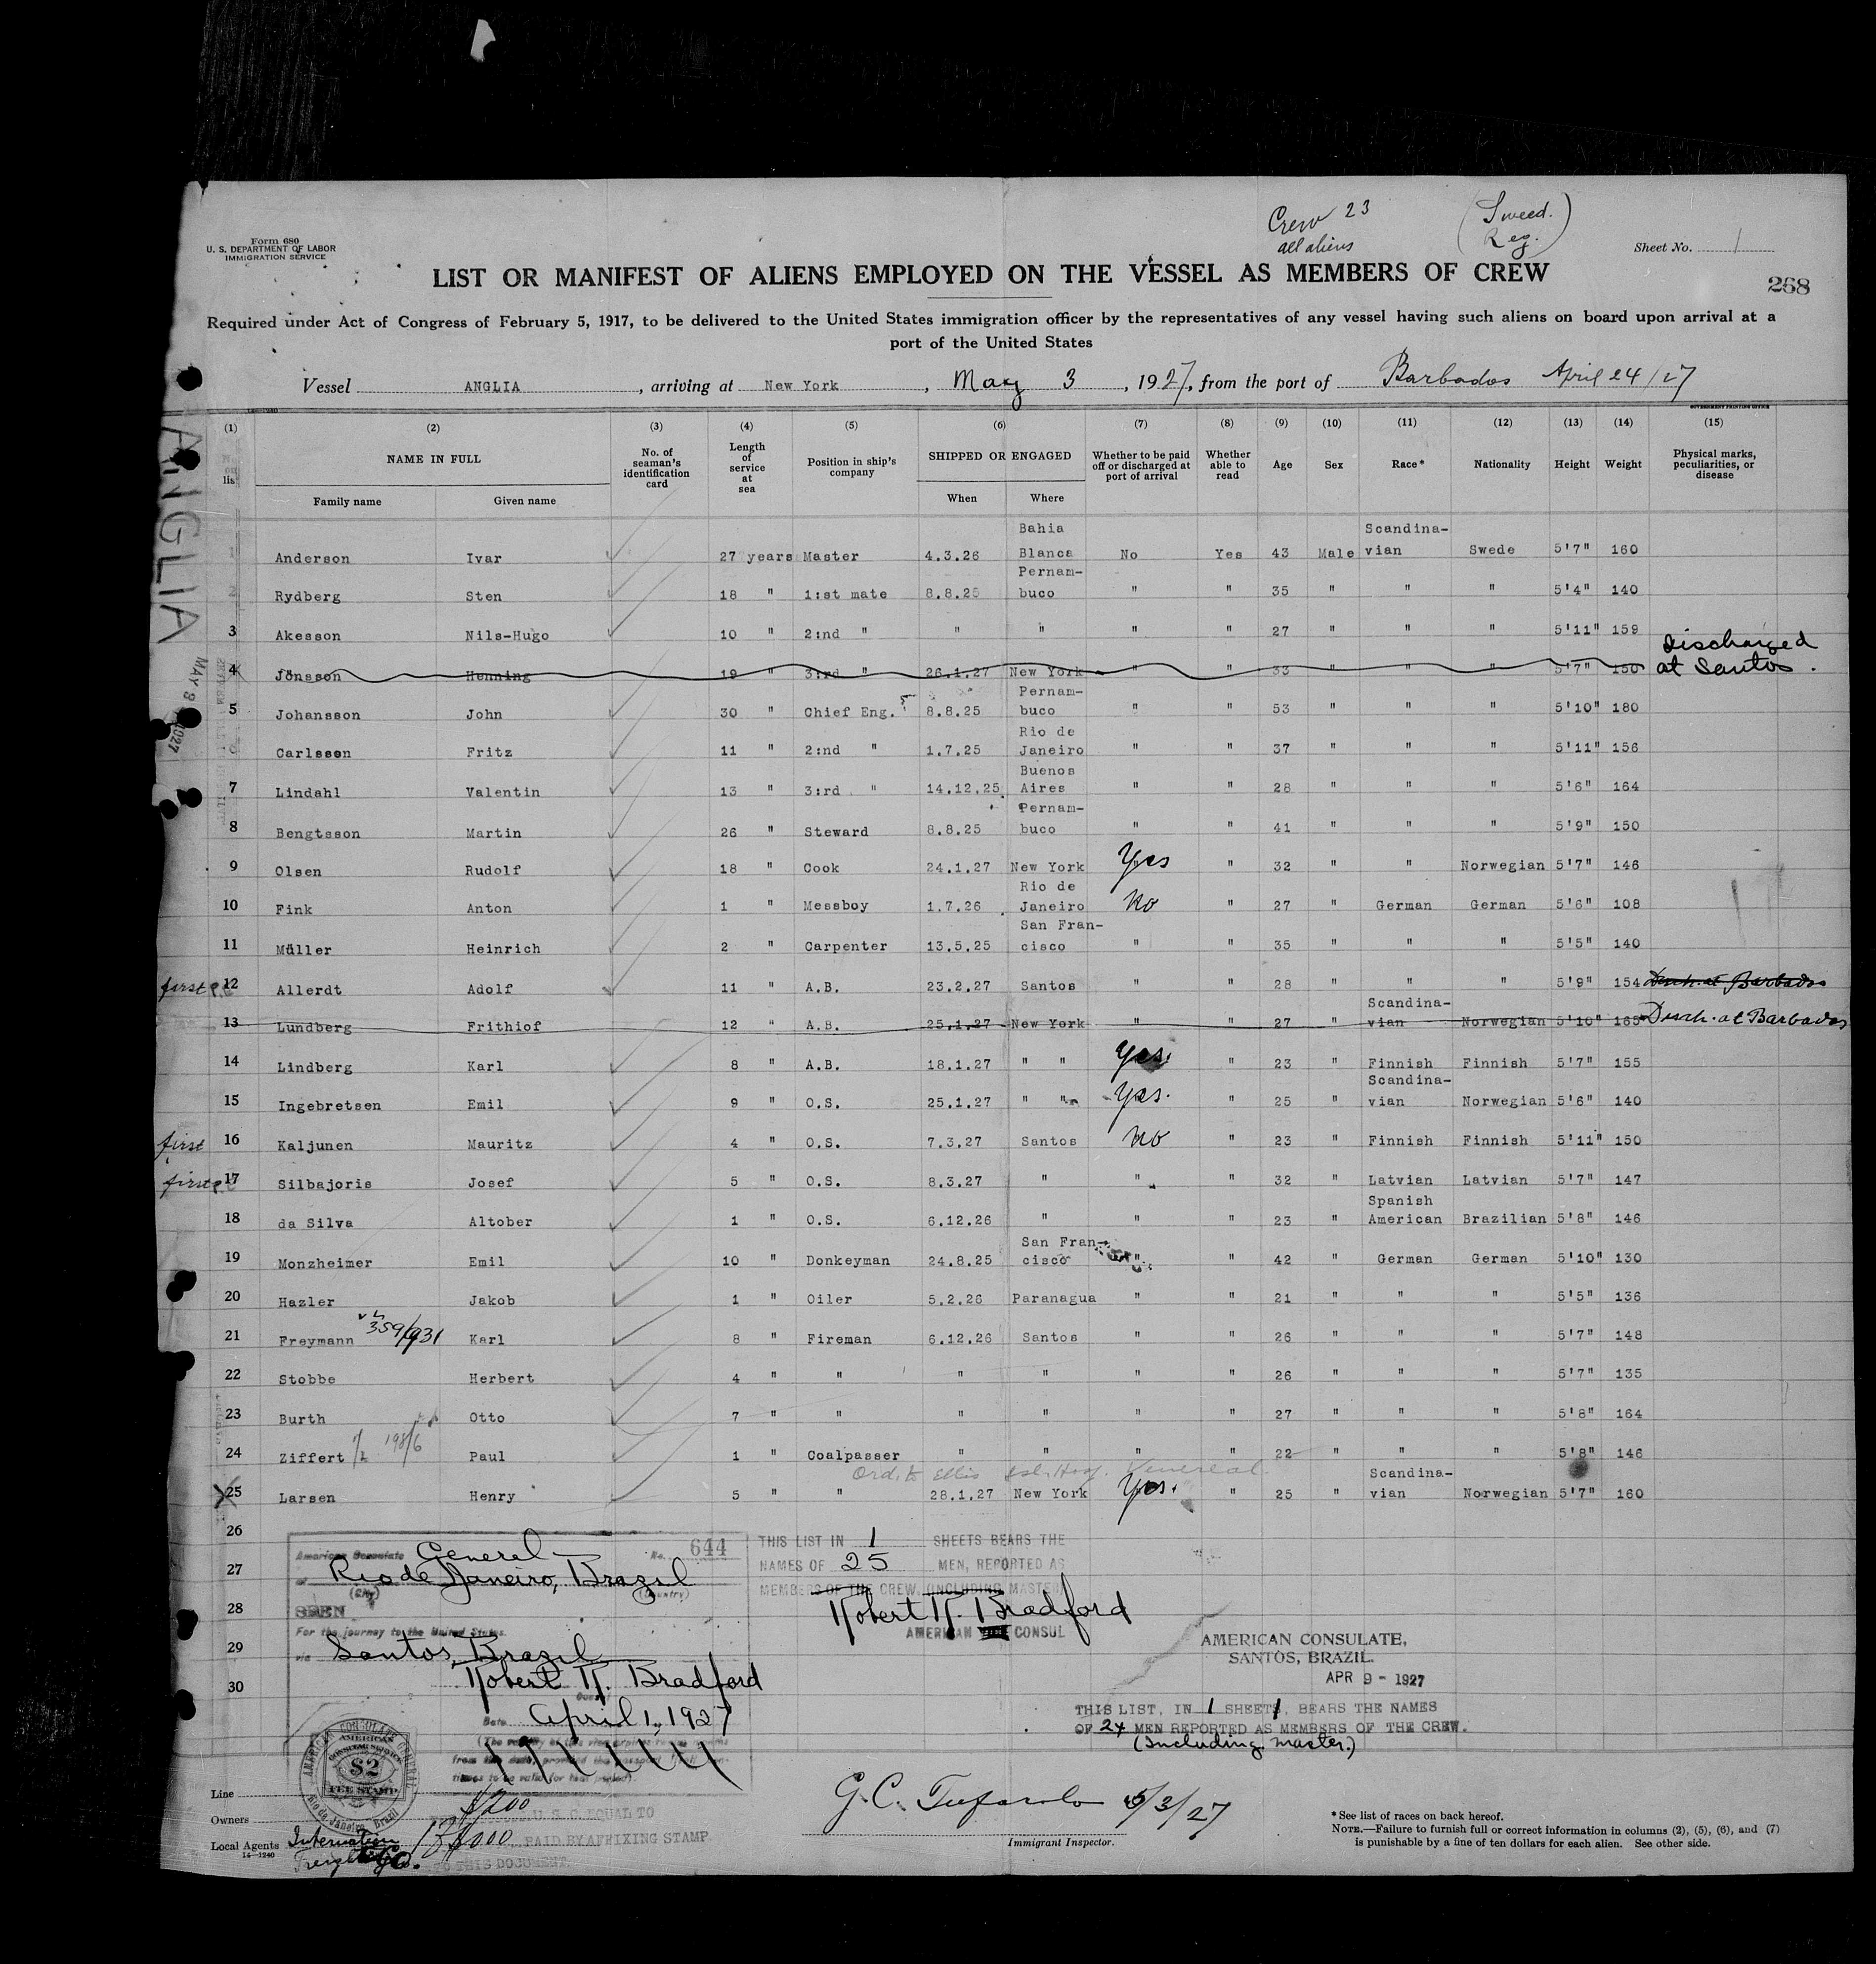 Crew 23
all aliens
(Swed.
Reg.)
Form 680
U. S. DEPARTMENT OF LABOR
IMMIGRATION SERVICE
Sheet No. 1
LIST OR MANIFEST OF ALIENS EMPLOYED ON THE VESSEL AS MEMBERS OF CREW
268
Required under Act of Congress of February 5, 1917, to be delivered to the United States immigration officer by the representatives of any vessel having such aliens on board upon arrival at a
port of the United States
Vessel ANGLIA, arriving at New York, May 3, 1927, from the port of Barbados April 24/27
GOVERNMENT PRINTING OFFICE
ANGLIA
MAY 3 1927
(1) (2) (3) (4) (5) (6) (7) (8) (9) (10) (11) (12) (13) (14) (15)
No. on list NAME IN FULL No. of seaman's identification card Length of service at sea Position in ship's company SHIPPED OR ENGAGED Whether to be paid off or discharged at port of arrival Whether able to read Age Sex Race* Nationality Height Weight Physical marks, peculiarities, or disease
Family name Given name When Where
1 Anderson Ivar 27 years Master 4.3.26 Bahia Blanca No Yes 43 Male Scandina-vian Swede 5'7" 160
2 Rydberg Sten 18 " 1:st mate 8.8.25 Pernam-buco " " 35 " " " 5'4" 140
3 Akesson Nils-Hugo 10 " 2:nd " " " " " 27 " " " 5'11" 159
4 Jönsson Henning 19 " 3:rd " 26.1.27 New York " " 33 " " " 5'7" 150 Discharged at Santos.
5 Johansson John 30 " Chief Eng. 8.8.25 Pernam-buco " " 53 " " " 5'10" 180
6 Carlsson Fritz 11 " 2:nd " 1.7.25 Rio de Janeiro " " 37 " " " 5'11" 156
7 Lindahl Valentin 13 " 3:rd " 14.12.25 Buenos Aires " " 28 " " " 5'6" 164
8 Bengtsson Martin 26 " Steward 8.8.25 Pernam-buco " " 41 " " " 5'9" 150
9 Olsen Rudolf 18 " Cook 24.1.27 New York Yes " 32 " " Norwegian 5'7" 146
10 Fink Anton 1 " Messboy 1.7.26 Rio de Janeiro No " 27 " German German 5'6" 108
11 Müller Heinrich 2 " Carpenter 13.5.25 San Fran-cisco " " 35 " " " 5'5" 140
first 12 Allerdt Adolf 11 " A.B. 23.2.27 Santos " " 28 " " " 5'9" 154 Disch. at Barbados
13 Lundberg Frithiof 12 " A.B. 25.1.27 New York " " 27 " Scandina-vian Norwegian 5'10" 165 Disch. at Barbados
14 Lindberg Karl 8 " A.B. 18.1.27 " " Yes. " 23 " Finnish Finnish 5'7" 155
15 Ingebretsen Emil 9 " O.S. 25.1.27 " " Yes. " 25 " Scandina-vian Norwegian 5'6" 140
first 16 Kaljunen Mauritz 4 " O.S. 7.3.27 Santos No " 23 " Finnish Finnish 5'11" 150
first 17 Silbajoris Josef 5 " O.S. 8.3.27 " " " 32 " Latvian Latvian 5'7" 147
18 da Silva Altober 1 " O.S. 6.12.26 " " " 23 " Spanish American Brazilian 5'8" 146
19 Monzheimer Emil 10 " Donkeyman 24.8.25 San Fran-cisco " " 42 " German German 5'10" 130
20 Hazler Jakob 1 " Oiler 5.2.26 Paranagua " " 21 " " " 5'5" 136
21 Freymann 359/931 Karl 8 " Fireman 6.12.26 Santos " " 26 " " " 5'7" 148
22 Stobbe Herbert 4 " " " " " " 26 " " " 5'7" 135
23 Burth Otto 7 " " " " " " 27 " " " 5'8" 164
24 Ziffert 198/6 Paul 1 " Coalpasser " " " " 22 " " " 5'8" 146
Ord. to Ellis Isl. Hosp. Venereal.
25 Larsen Henry 5 " " 28.1.27 New York Yes. " 25 " Scandina-vian Norwegian 5'7" 160
26
27
28
29
30
American Consulate General No. 644
Rio de Janeiro, Brazil
(City) (Country)
SEEN
For the journey to the United States
via Santos, Brazil
Robert R. Bradford
Date April 1, 1927
AMERICAN CONSULATE GENERAL
AMERICAN
CONSULAR SERVICE
$2
FEE STAMP
Rio de Janeiro, Brazil
THIS LIST IN 1 SHEETS BEARS THE
NAMES OF 25 MEN, REPORTED AS
MEMBERS OF THE CREW, (INCLUDING MASTER)
Robert R. Bradford
AMERICAN CONSUL
AMERICAN CONSULATE,
SANTOS, BRAZIL.
APR 9 - 1927
THIS LIST, IN 1 SHEET, BEARS THE NAMES
OF 24 MEN REPORTED AS MEMBERS OF THE CREW.
(Including master)
Line
Owners
Local Agents
14-1240
$200 U. S. C. EQUAL TO
PAID BY AFFIXING STAMP
TO THIS DOCUMENT
5/3/27
Immigrant Inspector.
*See list of races on back hereof.
NOTE.—Failure to furnish full or correct information in columns (2), (5), (6), and (7)
is punishable by a fine of ten dollars for each alien. See other side.